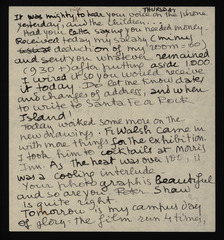 THURSDAY
It was mighty to hear your voice on the phone
yesterday, and the children.
Had your saying you needed money.
Received today my salary (minus
deduction of my room - 60)
and sent you whatever remained
(930 + ) after putting aside 1000
I wired it so you would receive
it today. Do let me know dates
and changes of address, and when
to write to Santa Fe or Rock
Island!
Today worked some more on the
new drawings. Fr Walsh came in
with more things for the exhibition.
I took him to cocktails at
Inn. As the heat was over 100, it
was a cooling interlude.
Your photograph is beautiful
and so are you. Peter Shaw
is quite right
Tomorrow is my campus day
of glory: the film run 4 times,